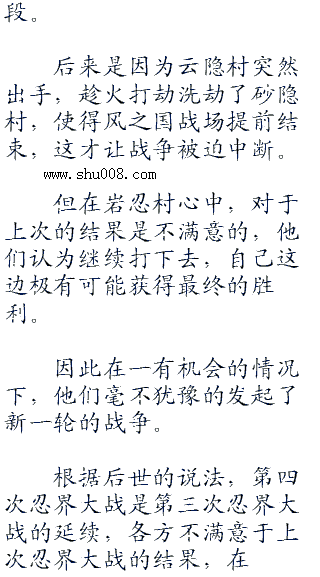 段。
后来是因为云隐村突然
出手，趁火打劫洗劫了砂隐
村，使得风之国战场提前结
束，这才让战争被迫中断。
www.shu008.com
但在岩忍村心中，对于
上次的结果是不满意的，他
们认为继续打下去，自己这
边极有可能获得最终的胜
利。
因此在一有机会的情况
下，他们毫不犹豫的发起了
新一轮的战争。
根据后世的说法，第四
次忍界大战是第三次忍界大
战的延续，各方不满意于上
次忍界大战的结果，在